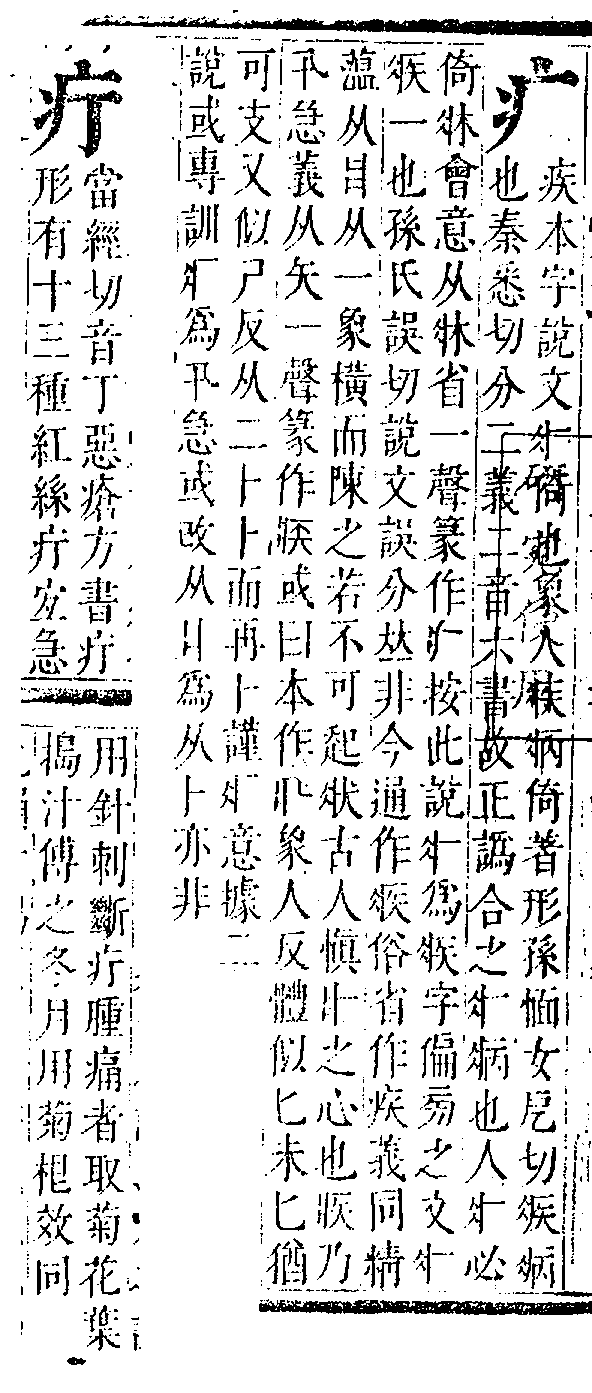 疒
疾本字說文疒倚也象人疾病倚著形孫愐女戹切疾病
也秦悉切分二義二音六書故正譌合之疒病也人疒必
倚牀會意从牀省一聲篆作疒按此說疒爲疾字偏旁之文疒
疾一也孫氏誤切說文誤分𠀤非今通作疾俗省作疾義同精
薀从目从一象橫而陳之若不可起狀古人愼疒之心也疾乃
卂急義从矢一聲篆作疾或曰本作疒象人反體似匕未匕猶
可支又似尸反从二卜卜而再卜謹疒意據二
說或專訓疒爲卂急或改从爿爲从卜亦非
疔
當經切音丁惡瘡方書疔
形有十三種紅絲疔㝡急
用針刺斷疔腫痛者取菊花葉
搗汁傅之冬月用菊根效同